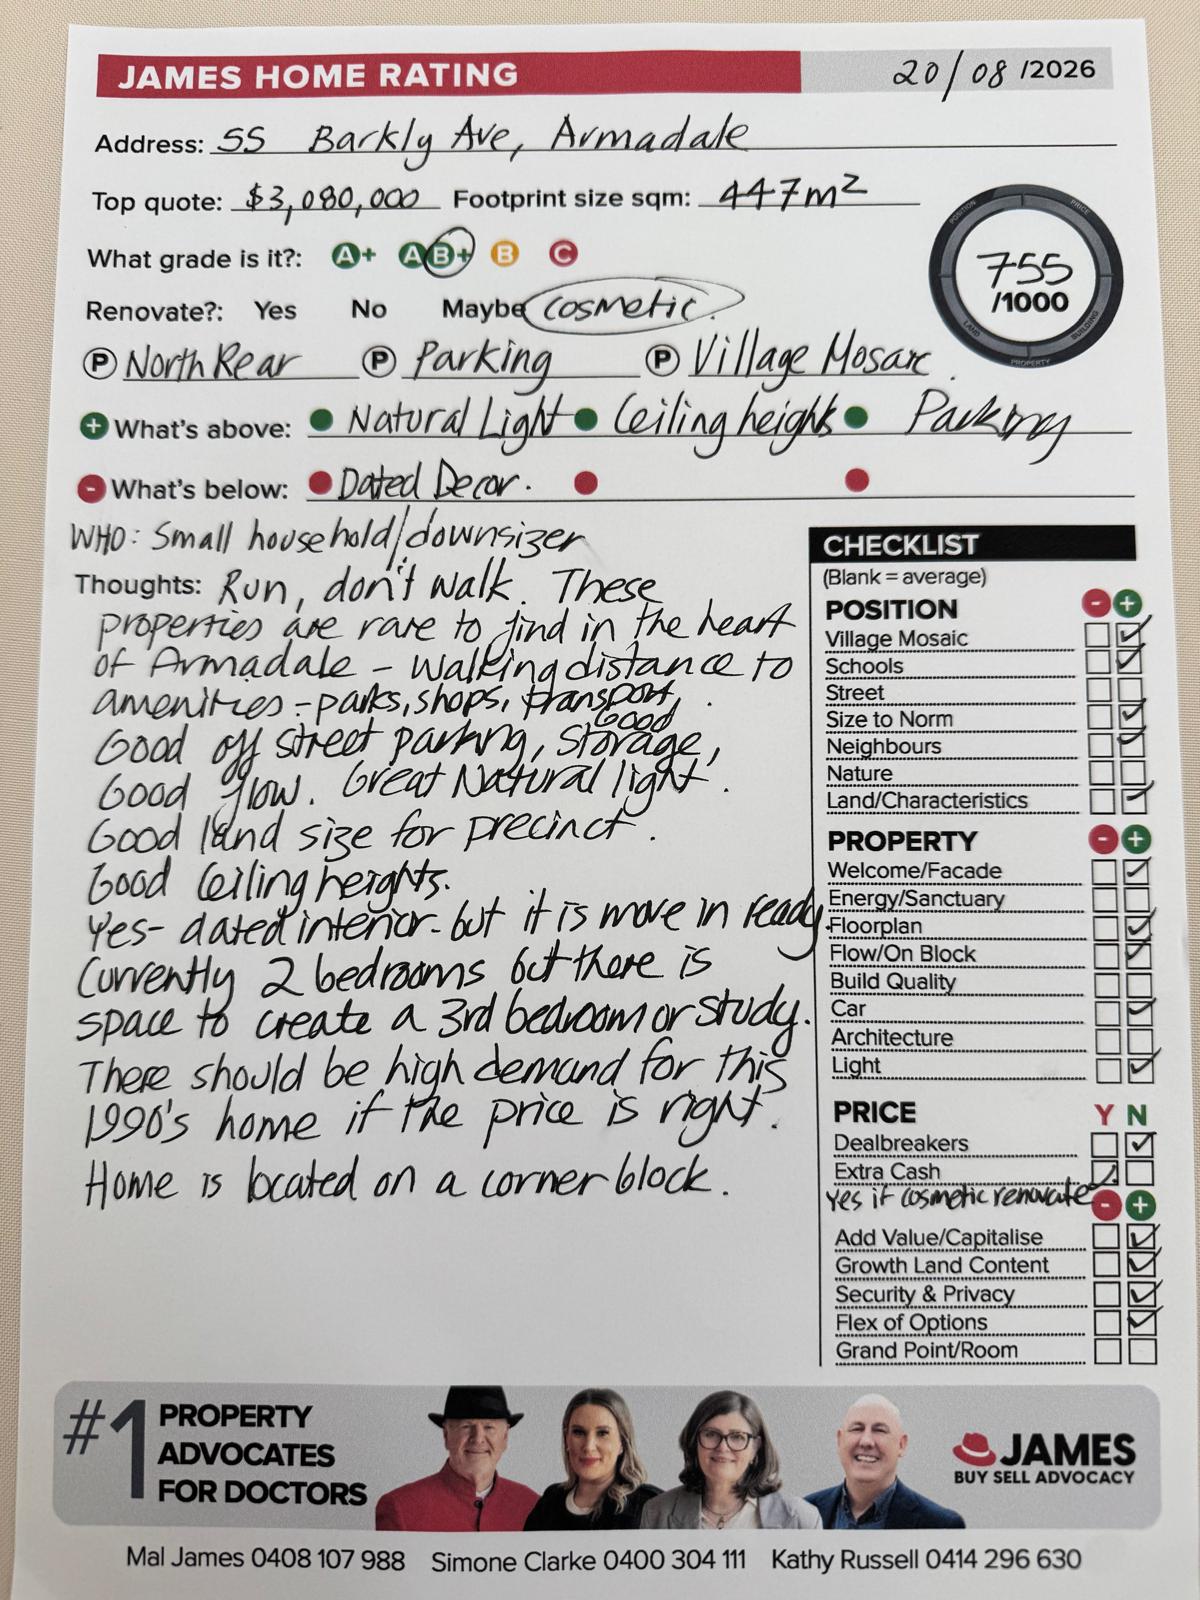 JAMES HOME RATING 20/08/2026
Address: 55 Barkly Ave, Armadale
Top quote: $3,080,000 Footprint size sqm: 447m²
What grade is it?: A+ A B+ B C
POSITION PRICE LAND BUILDING PROPERTY
755
/1000
Renovate?: Yes No Maybe cosmetic.
P North Rear P Parking P Village Mosaic.
+ What's above: Natural Light Ceiling heights Parking
- What's below: Dated Decor.
WHO: Small household/downsizer
Thoughts: Run, don't walk. These
properties are rare to find in the heart
of Armadale - walking distance to
amenities - parks, shops, transport.
Good off street parking, Good storage,
Good flow. Great Natural light.
Good land size for precinct.
Good Ceiling heights.
Yes- dated interior- but it is move in ready.
Currently 2 bedrooms but there is
space to create a 3rd bedroom or study.
There should be high demand for this
1990's home if the price is right.
Home is located on a corner block.
CHECKLIST
(Blank = average)
POSITION - +
Village Mosaic
Schools
Street
Size to Norm
Neighbours
Nature
Land/Characteristics
PROPERTY - +
Welcome/Facade
Energy/Sanctuary
Floorplan
Flow/On Block
Build Quality
Car
Architecture
Light
PRICE Y N
Dealbreakers
Extra Cash
Yes if cosmetic renovate - +
Add Value/Capitalise
Growth Land Content
Security & Privacy
Flex of Options
Grand Point/Room
#1 PROPERTY
ADVOCATES
FOR DOCTORS
JAMES
BUY SELL ADVOCACY
Mal James 0408 107 988 Simone Clarke 0400 304 111 Kathy Russell 0414 296 630